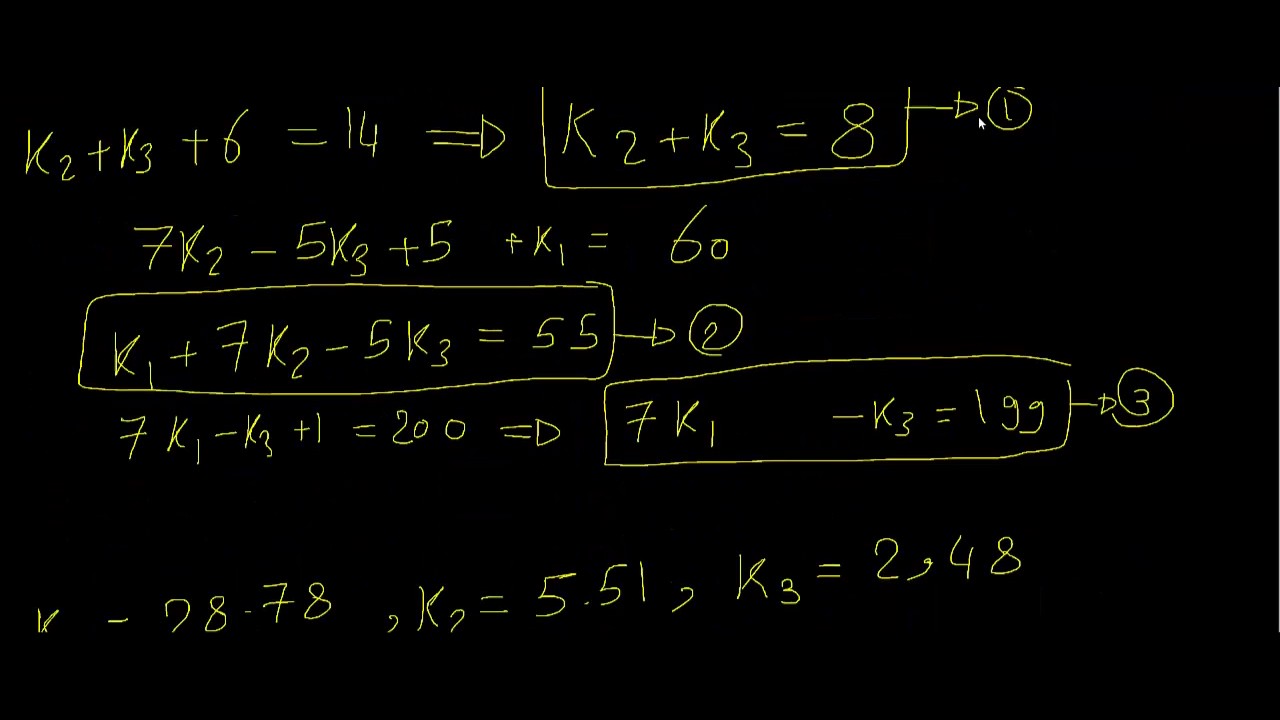 K2+K3 +6 = 14 ⇒ K2+K3 = 8 → ①
7K2 - 5K3 +5 +K1 = 60
K1 + 7K2 - 5K3 = 55 → ②
7K1 - K3 +1 = 200 ⇒ 7K1 -K3 = 199 → ③
K = 28.78 , K2 = 5.51 , K3 = 2,48